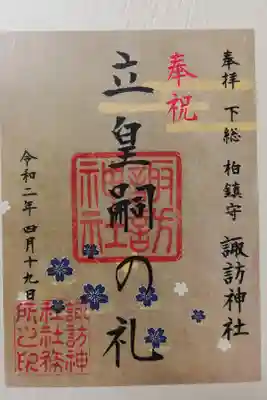 奉拝 下総 柏鎮守 諏訪神社
奉祝
立皇嗣の礼
諏訪神社
令和二年四月十九日
諏訪神社社務所之印